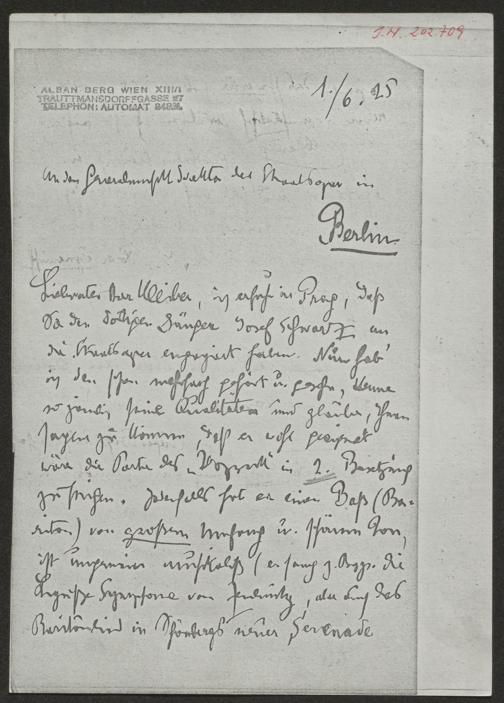 I.N. 202.709
ALBAN BERG WIEN XIII/1
TRAUTTMANSDORFFGASSE 27
TELEPHON: AUTOMAT 84831
1./6. 25
An den Generalmusikdirektor der Staatsoper in
Berlin
Liebwerter Herr Kleiber, ich erfuhr in Prag, daß
Sie den dortigen Sänger Josef Schwartz an
die Staatsoper engagiert haben. Nun hab'
ich den schon mehrfach gehört u. gesehn, kenne
so ziemlich seine Qualitäten und glaube, Ihnen
sagen zu können daß er wohl geeignet
wäre die Partie des „Wozzeck" in 2. Besetzung
zu singen. Jedenfalls hat er einen Baß (Ba-
riton) von großem Umfang u. schönem Ton,
ist ungemein musikalisch (er sang z. Bsp. die
Lyrische Symphonie von Zemlinsky, aber auch das
Baritonlied in Schönbergs neuer Serenade